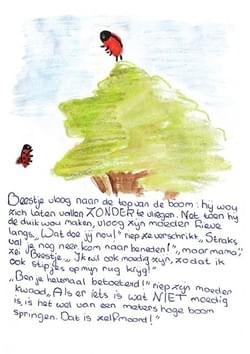 Beestje vloog naar de top van de boom: hij wou
zich laten vallen ZONDER te vliegen. Net toen hij
de duik wou maken, vloog zijn moeder Lieve
langs. „Wat doe jij nou!" riep ze verschrikt. „Straks
val je nog neer kom naar beneden!" „maar mama",
zei Beestje. „Ik wil ook moedig zijn, zodat ik
ook stipjes op mijn rug krijg!"
„Ben je helemaal betoeterd!" riep zijn moeder
kwaad. „Als er iets is wat NIET moedig
is, is het wel van een meters hoge boom
springen. Dat is zelfmoord!"